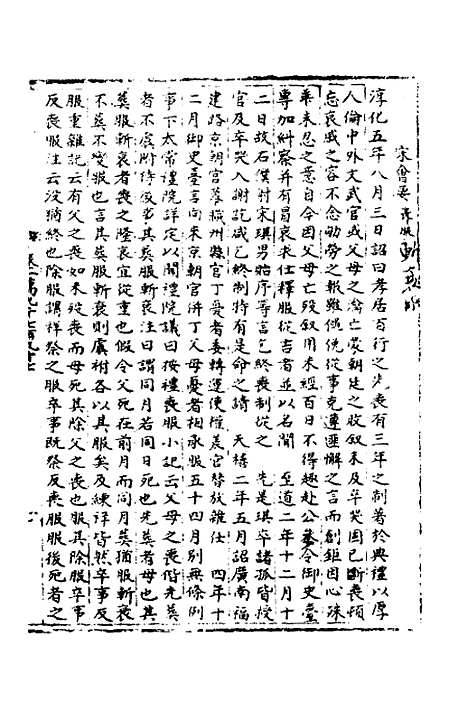 宋會要
淳化五年八月三日詔曰孝居百行之先喪有三年之制著於典禮以厚
人倫中外文武官或父母之淪亡蒙朝廷之敘未及卒哭因已斷喪頓
忘哀戚之容不念劬勞之報雖俛從事克遵匪懈之言而創鉅因心殊
乖永忍之意自今因父母亡歿敘用未經百日不得趨赴公參令御史臺
專加糾察并有冒哀求仕釋服從吉者並以名聞 至道二年十二月十
二日故右僕射宋琪男貽序等言乞終喪制從之 先是琪卒諸孤皆授
官及卒哭入謝訖咸乞終制特有是命之請 天禧二年五月詔廣南福
建路京朝官幕職州縣官丁憂者委轉運使權差官替放離任 四年十
二月御史臺言向來京朝官併丁父母憂者相承服五十四月別無條例
事下太常禮院詳定以聞禮院議曰按禮喪服小記云父母之喪偕先葬
者不虞附待後事其葬服斬衰注曰謂同月若同日死也先葬者母也其
葬服斬衰者喪之隆哀宜從重也假令父死在前月而同月葬猶服斬衰
不葬不變服也言其葬服斬衰則虞祔各以其服矣及練祥皆然卒事反
服重雜記云有父之喪如未歿喪而母死其除父之喪也服其除服卒事
反喪服注云沒猶終也除服謂祥祭之服卒事既祭反喪服服後死者之